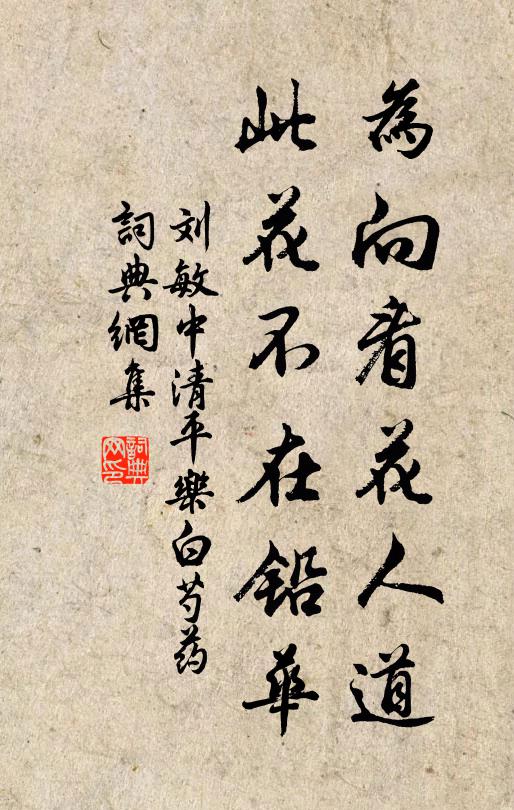 為向看花人道
此花不在铅華
刘敏中清平樂白芍药
詞典網集
詞典网印